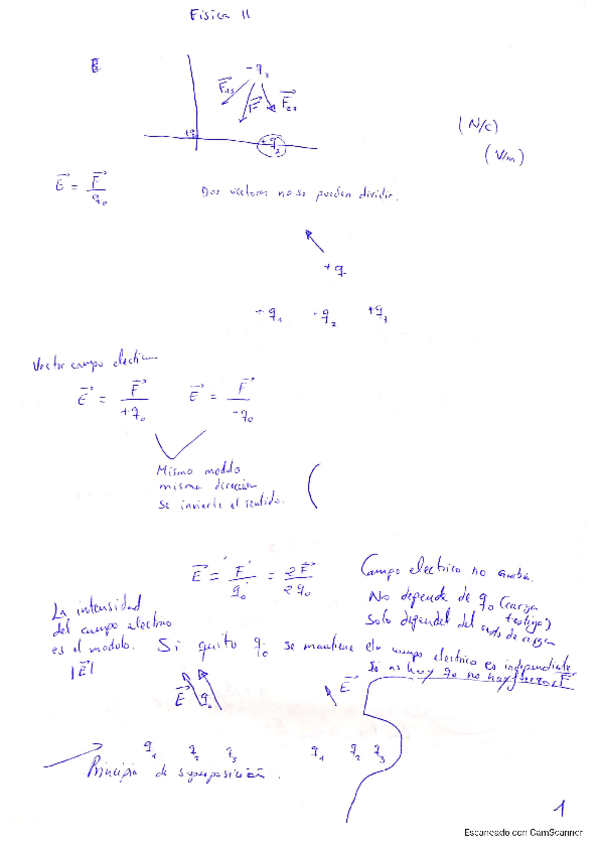 Fisica II
-q3
F13
F
F23
+q2
(N/C)
(V/m)
E = F / q0
Dos vectores no se pueden dividir.
+q
-q1 -q2 +q3
Vector campo electrico
E = F / +q0 E = F / -q0
Mismo modulo
misma direccion
se invierte el sentido.
E = F' / q0' = 2F / 2q0
Campo electrico no cambia.
No depende de q0 (carga testigo)
Solo depende del resto de cargas
La intensidad
del campo electrico
es el modulo.
|E|
Si quito q0 se mantiene el campo electrico es independiente
Si no hay q0 no hay fuerza F
E q0 E
q1 q2 q3 q1 q2 q3
Principio de superposición.
1
Escaneado con CamScanner